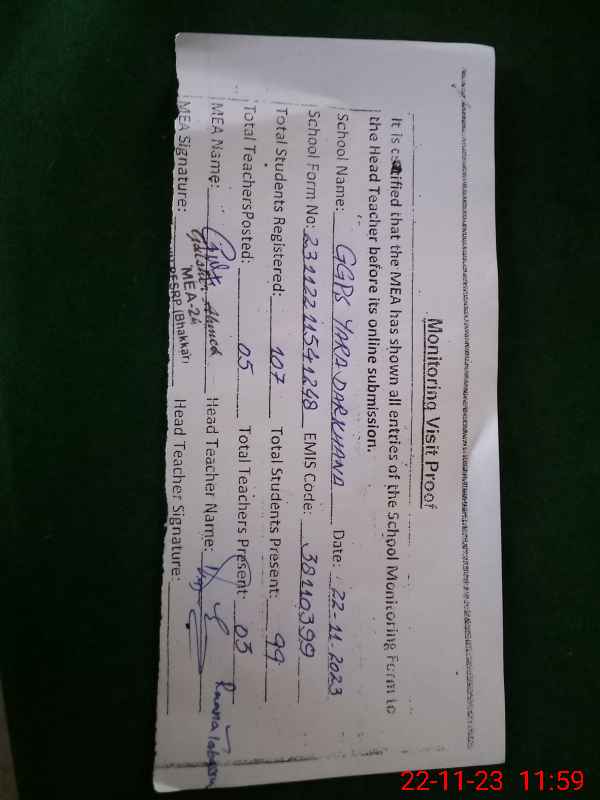 Monitoring Visit Proof
It is certified that the MEA has shown all entries of the School Monitoring Form to
the Head Teacher before its online submission.
School Name: GGPS YARA DARKHANA Date: 22-11-2023
School Form No: 23112211541248 EMIS Code: 38110399
Total Students Registered: 107 Total Students Present: 99
Total TeachersPosted: 05 Total Teachers Present: 03
MEA Name: Ahmed Head Teacher Name:
MEA-24
MEA Signature: PESRP (Bhakkar) Head Teacher Signature:
22-11-23 11:59